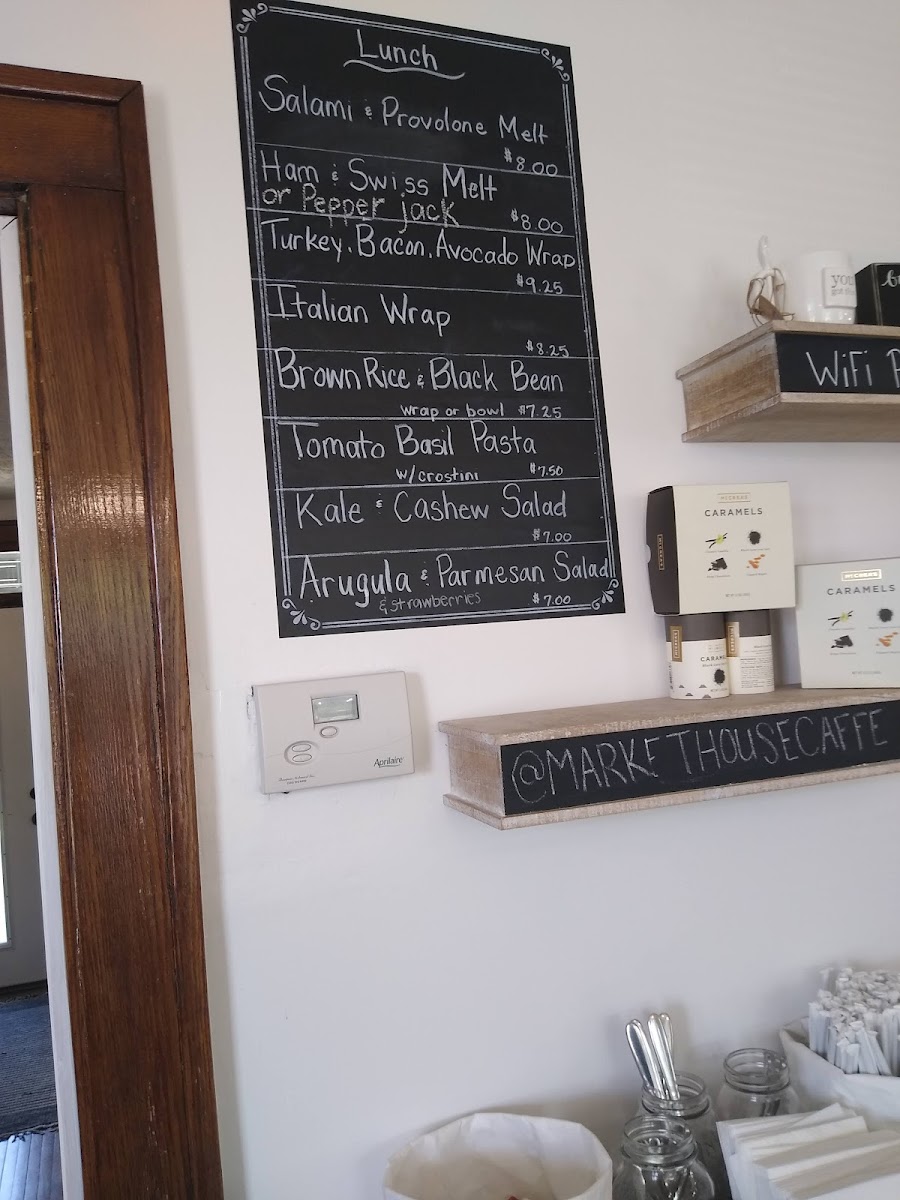 Lunch
Salami & Provolone Melt
$8.00
Ham & Swiss Melt
or Pepper jack
$8.00
Turkey, Bacon, Avocado Wrap
$9.25
Italian Wrap
$8.25
Brown Rice & Black Bean
wrap or bowl $7.25
Tomato Basil Pasta
w/crostini $7.50
Kale & Cashew Salad
$7.00
Arugula & Parmesan Salad
& strawberries $7.00
you
WiFi P
McCREA'S
CARAMELS
McCREA'S
CARAMELS
CARAMELS
@MARKETHOUSECAFFE
Aprilaire